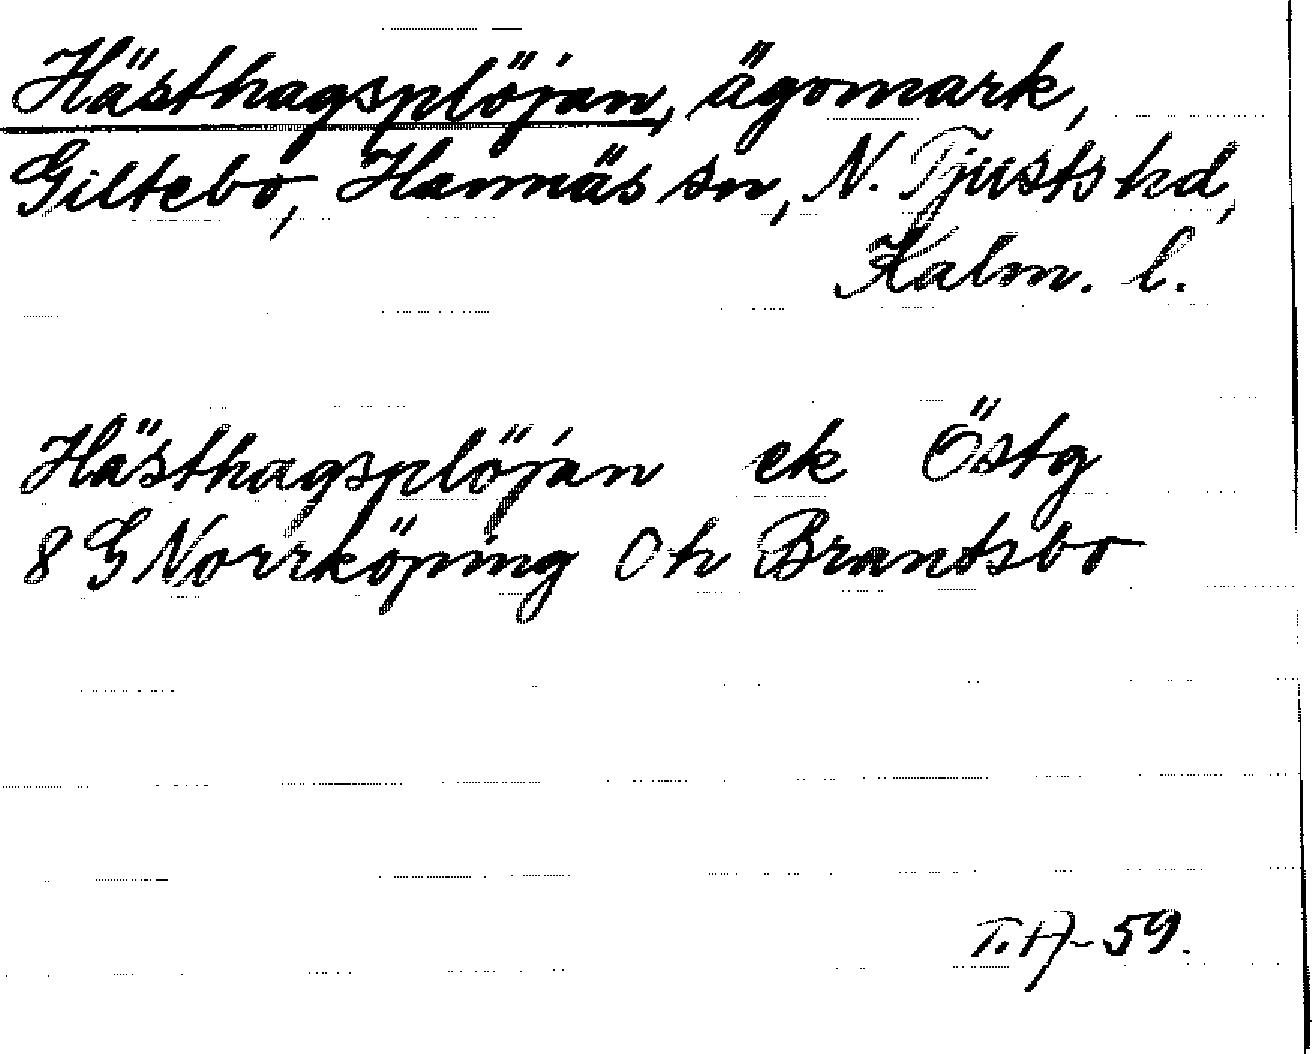 Hästhagsplöjan, ägomark,
Giltebo, Hannäs sn, N. Tjusts hd,
Kalm. l.
Hästhagsplöjan ek Östg
8 G Norrköping Oh Brantsbo
T.H-59.